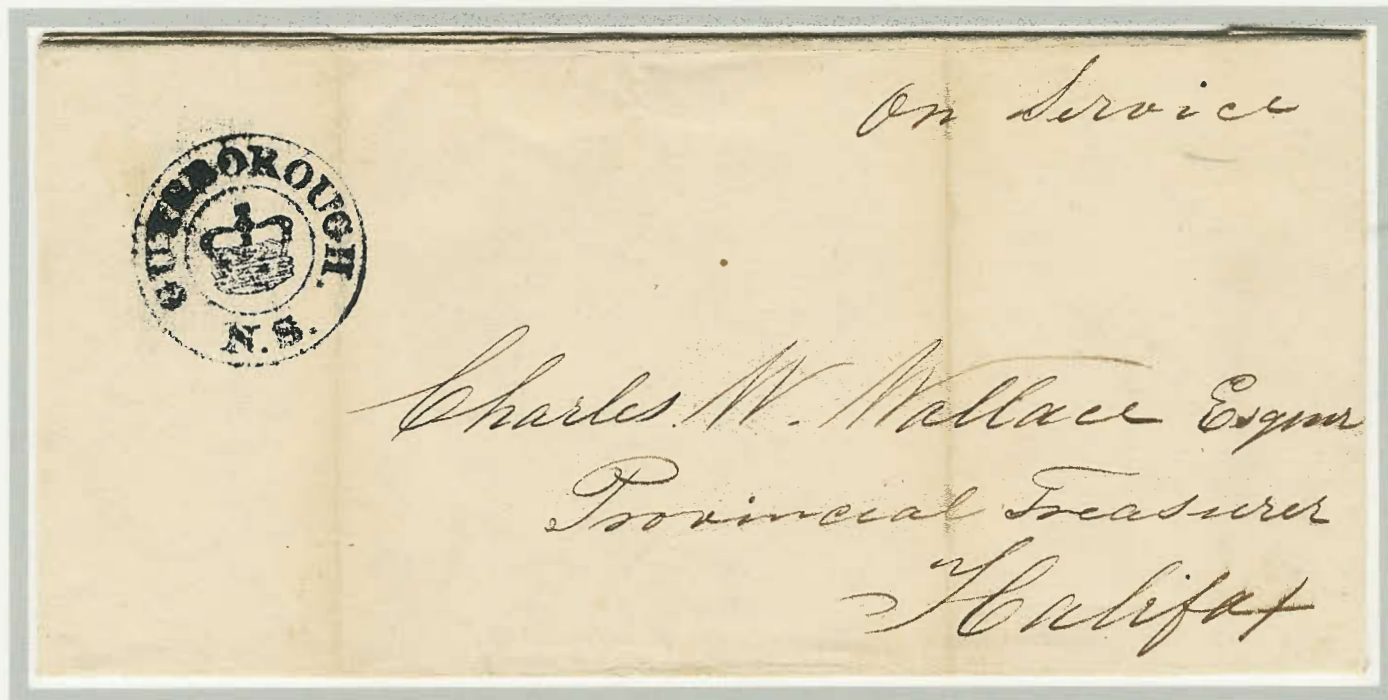 On Service
GUYSBOROUGH.
N.S.
Charles W. Wallace Esqur
Provincial Treasurer
Halifax